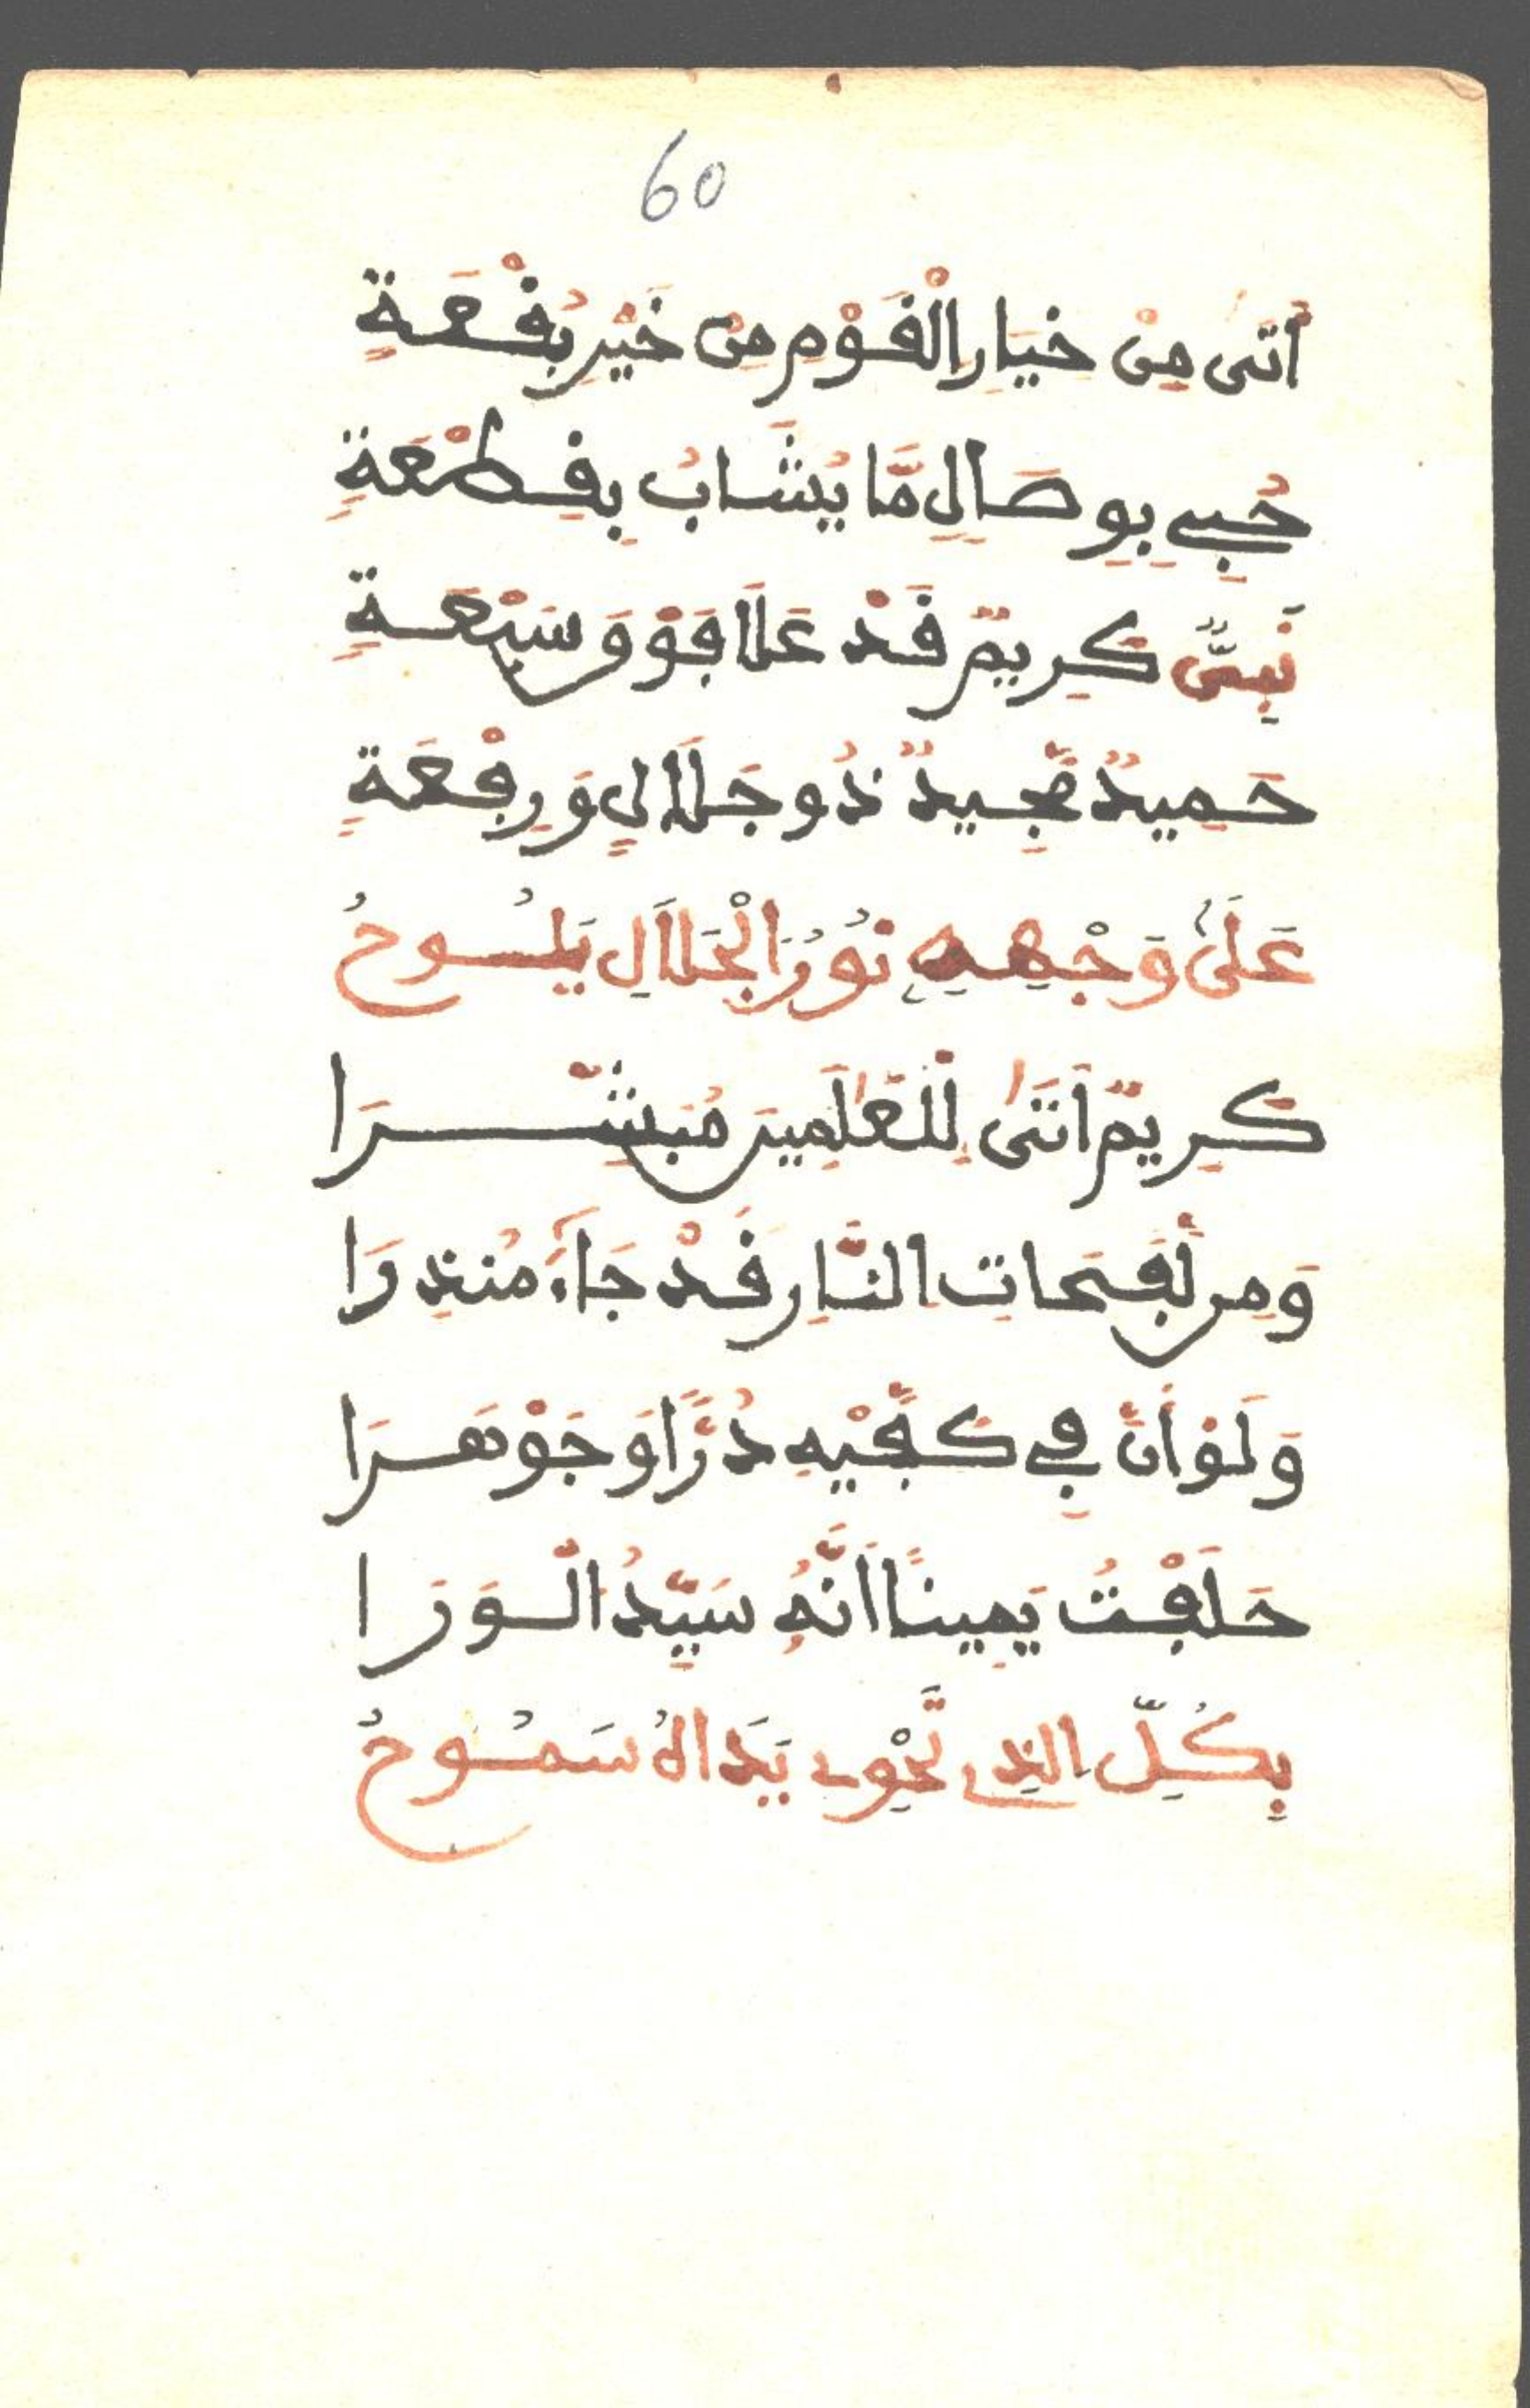 60
أَتَىٰ مِنْ خِيَارِ الْقَوْمِ مِنْ خَيْرِ بُقْعَةٍ
حُبِي بِوِصَالٍ مَّا يُشَابُ بِقِطْعَةِ
نَبِيٌّ كَرِيمٌ قَدْ عَلَا فَوْقَ سَبْعَةٍ
حَمِيدٌ مَّجِيدٌ ذُو جَلَالٍ وَرِفْعَةٍ
عَلَىٰ وَجْهِهِ نُورُ الْجَلَالِ يَلُوحُ
كَرِيمٌ أَتَىٰ لِلْعَٰلَمِينَ مُبَشِّرَا
وَمِن لَّفَحَاتِ النَّارِ قَدْ جَاءَ مُنذِرَا
وَلَوْ أَنَّ فِي كَفَّيْهِ دُرًّا وَجَوْهَرَا
حَلَفْتُ يَمِينًا أَنَّهُ سَيِّدُ الْوَرَا
بِكُلِّ الذِي تَّحْوِي يَدَاهُ سَمُوحُ